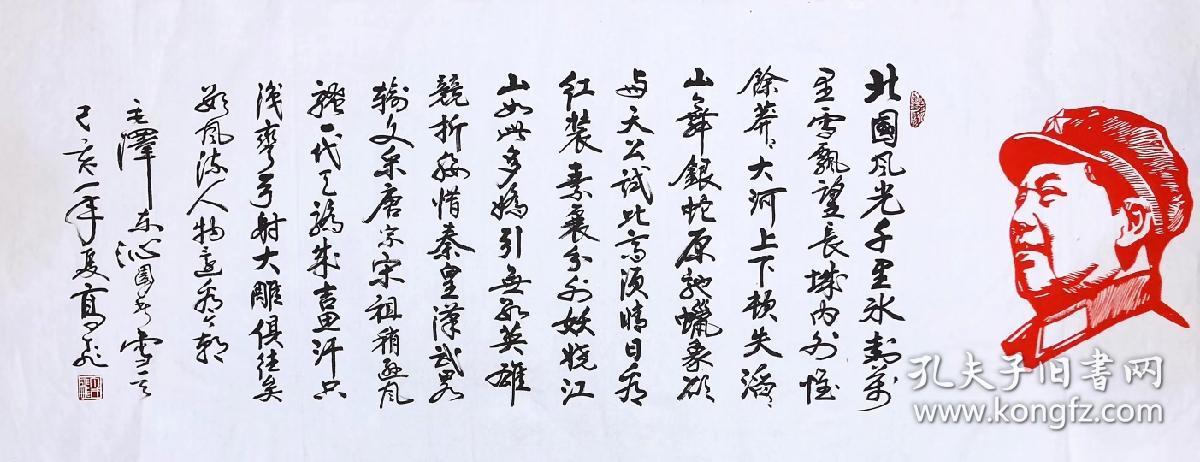 北國风光千里冰封萬
里雪飘望長城内外惟
餘莽〻大河上下頓失滔〻
山舞銀蛇原馳蠟象欲
与天公試比高须晴日看
红装素裹分外妖娆江
山如此多嬌引無数英雄
競折腰惜秦皇漢武略
输文采唐宗宋祖稍逊风
骚一代天骄成吉思汗只
识弯弓射大雕俱往矣
数风流人物还看今朝
毛澤东沁園春雪
己亥年夏高飞
孔夫子旧书网
www.kongfz.com